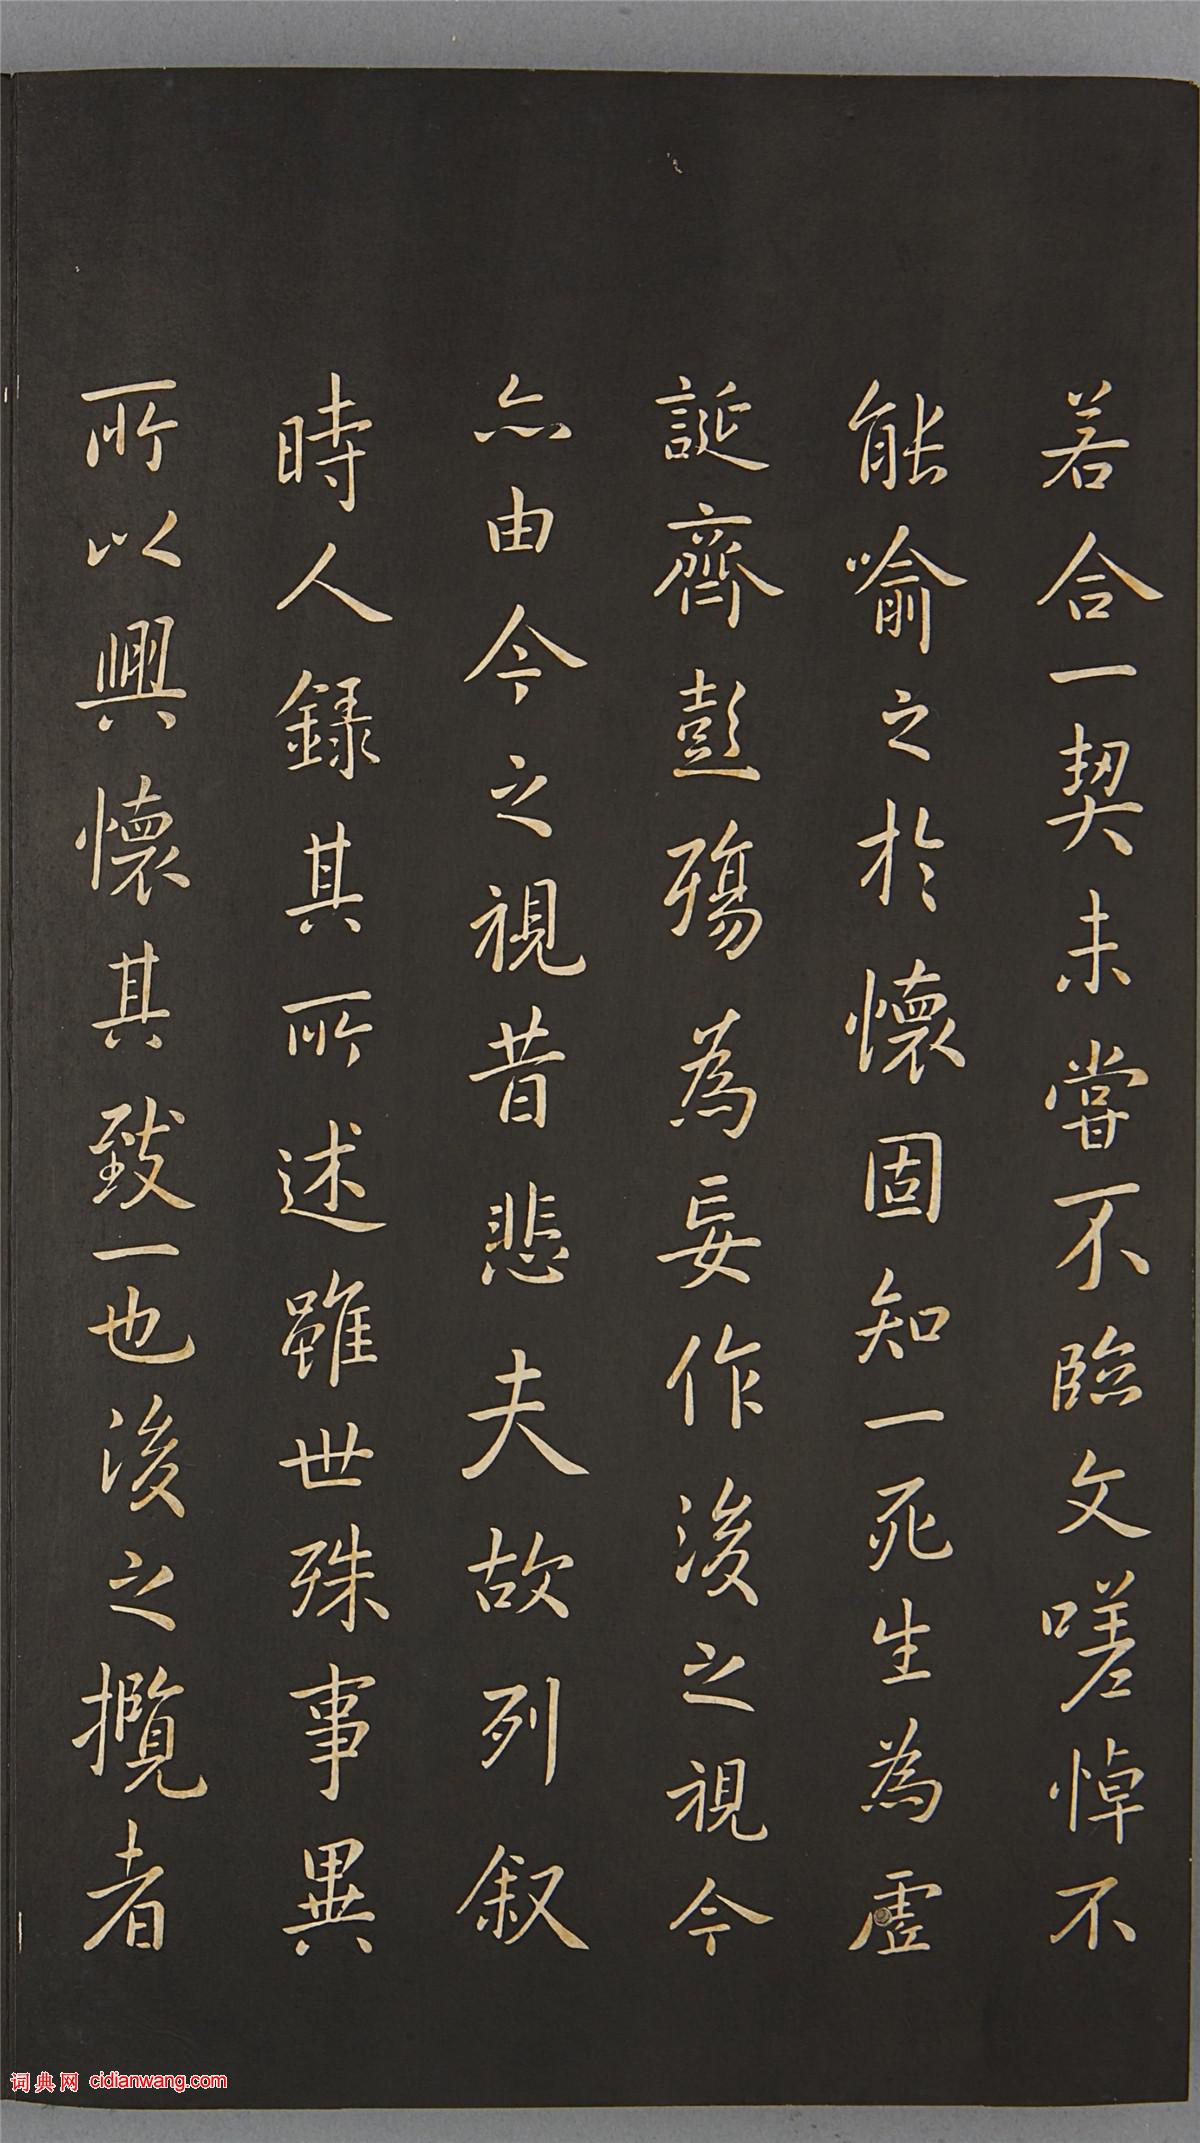 若合一契未嘗不臨文嗟悼不
能喻之於懷固知一死生為虛
誕齊彭殤為妄作後之視今
亦由今之視昔悲夫故列叙
時人録其所述雖世殊事異
所以興懷其致一也後之攬者
词典网 cidianwang.com